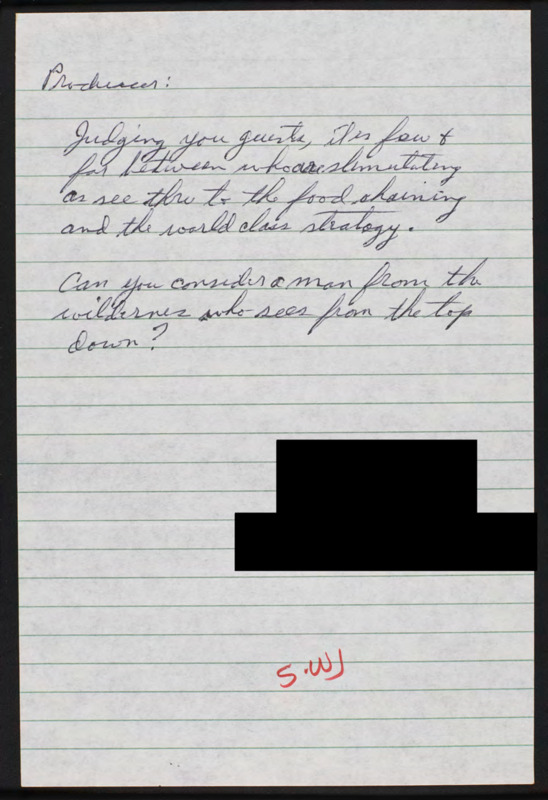 Producer:
Judging you guests, it's few &
far between who are stimulating
as see thru to the food chaining
and the world class strategy.
Can you consider a man from the
wildernes who sees from the top
down?
S.W